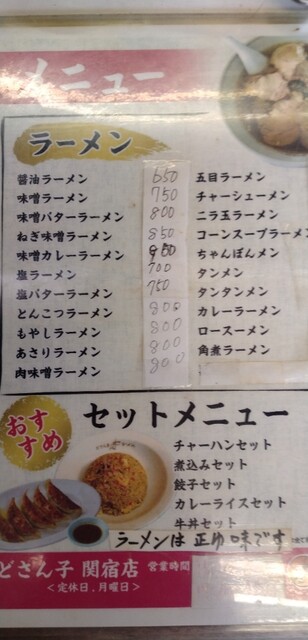 メニュー
ラーメン
醤油ラーメン 650
味噌ラーメン 750
味噌バターラーメン 800
ねぎ味噌ラーメン 850
味噌カレーラーメン
塩ラーメン 700
塩バターラーメン 750
とんこつラーメン 800
もやしラーメン 800
あさりラーメン 800
肉味噌ラーメン 800
五目ラーメン
チャーシューメン
ニラ玉ラーメン
コーンスープラーメン
ちゃんぽんメン
タンメン
タンタンメン
カレーラーメン
ロースーメン
角煮ラーメン
おすすめ
セットメニュー
チャーハンセット
煮込みセット
餃子セット
カレーライスセット
牛丼セット
ラーメンは 正ゆ 味です
どさん子 関宿店 営業時間
＜定休日.月曜日＞